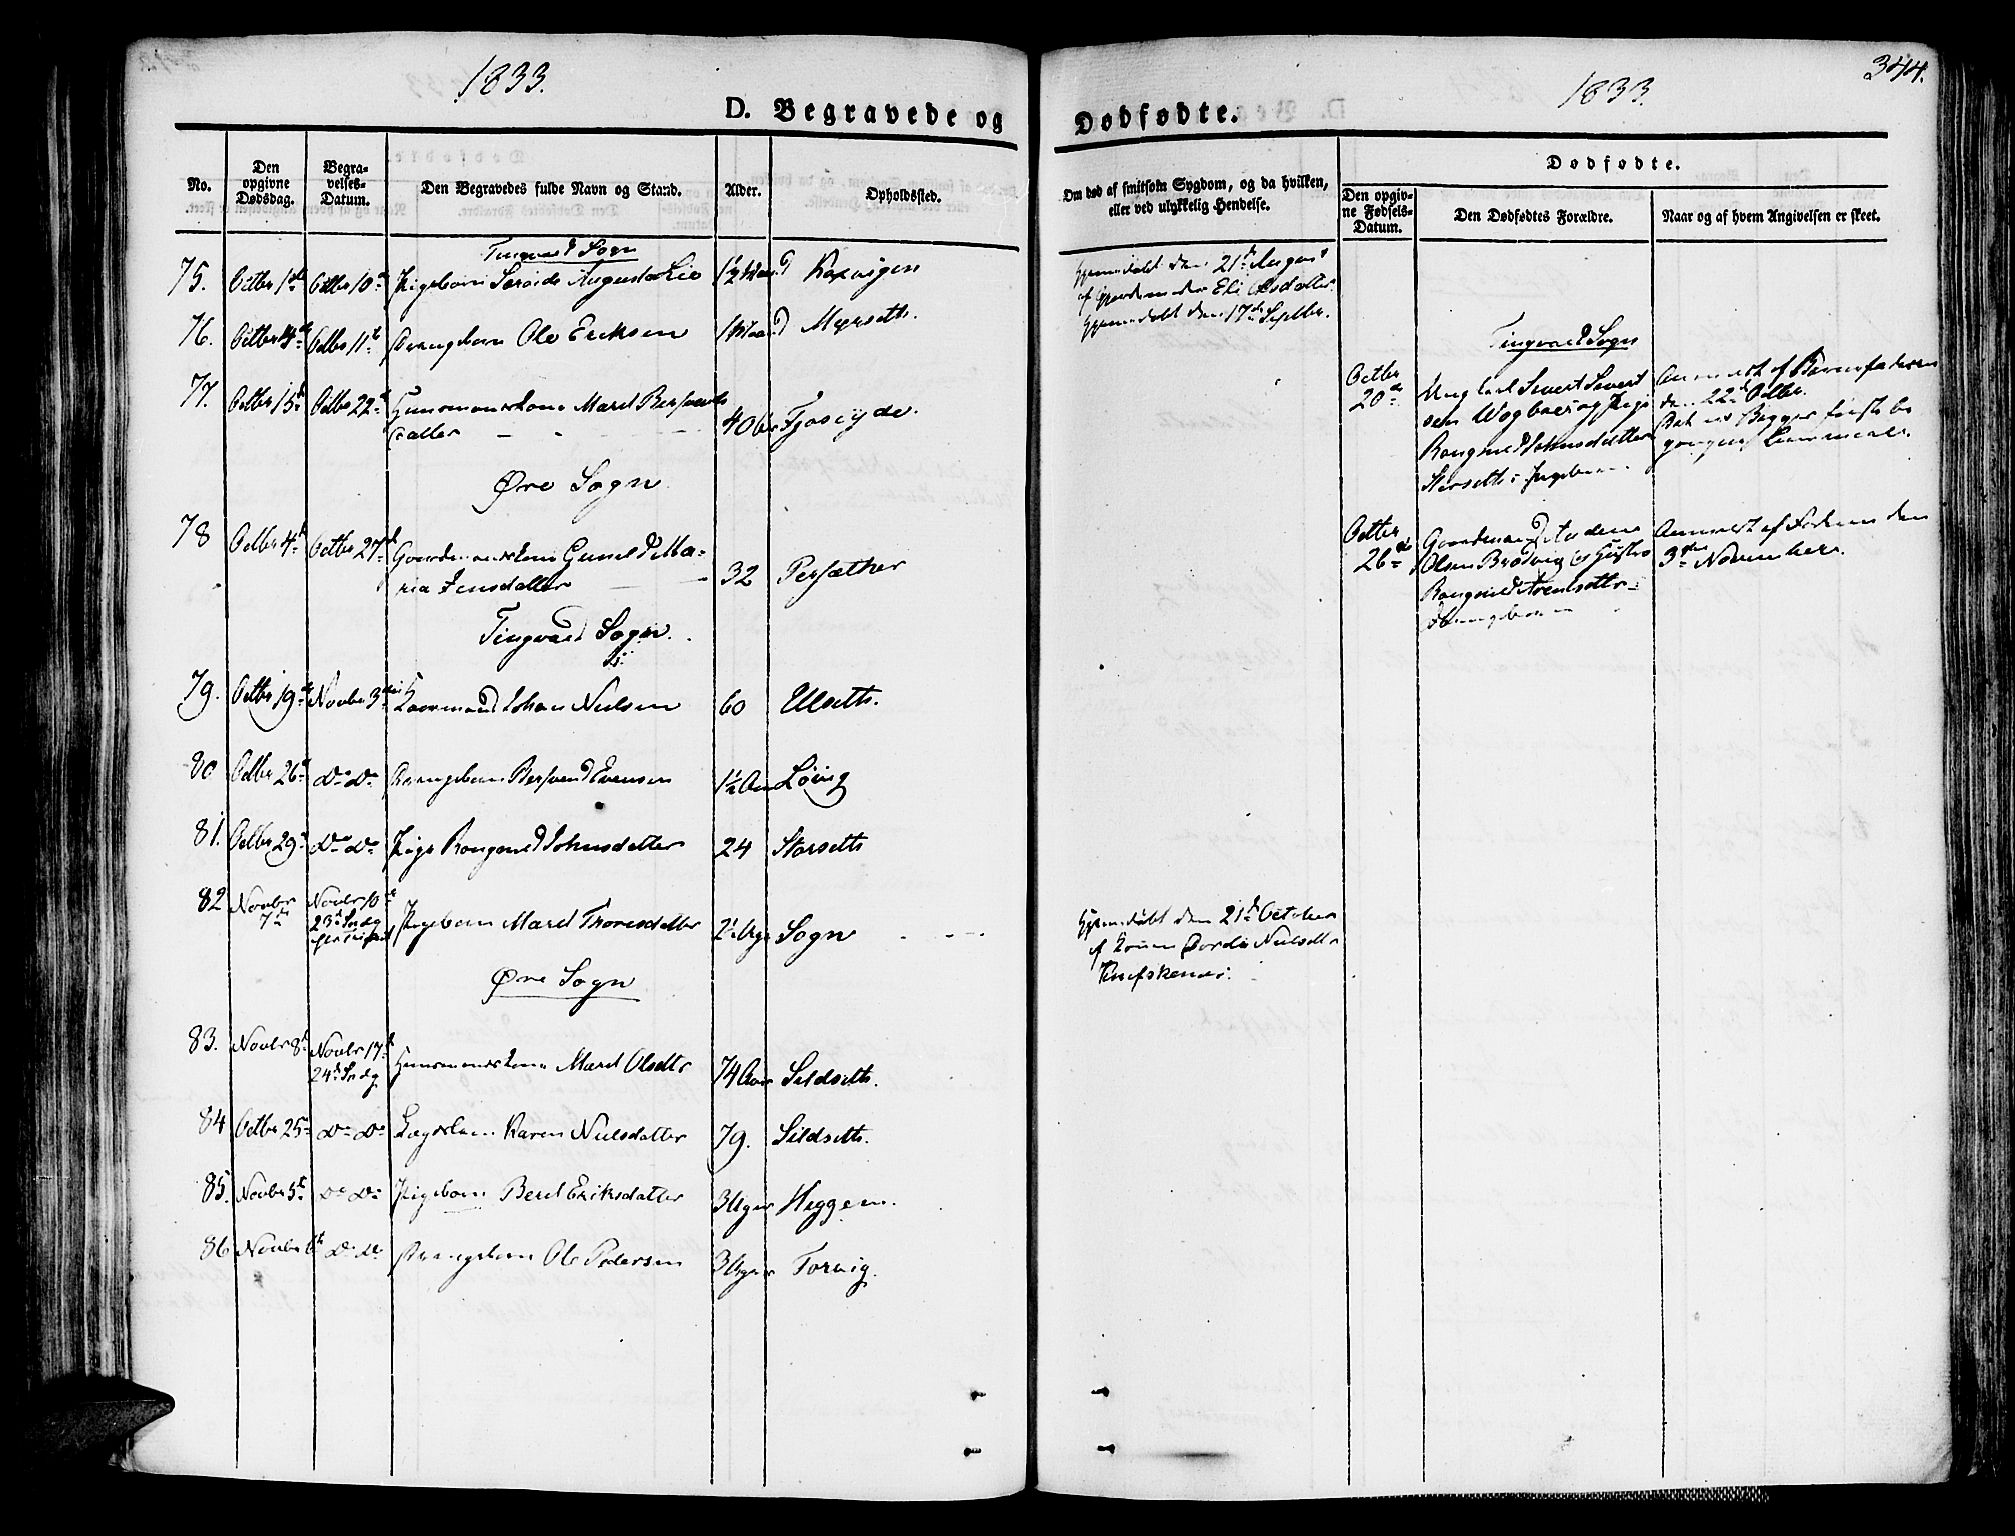 1833.
D. Begravede og
No.
Den opgivne Dødsdag.
Begra-velses-Datum.
Den Begravedes fulde Navn og Stand.
Alder.
Opholdssted.
Tingvold Sogn
75. Octbr 1ste Octbr 10de Pigebarn Augusta Lie 1½ Maaned
76. Octbr 4de Octbr 11te Drengebarn Ole Eriksen 1 Maaned Myrseth.
77. Octbr 15de Octbr 22de Huusmandskone Marit Bersvends
datter 40 Fjøseyde.
Øre Sogn
78 Octbr 4de Octbr 27de Gaardmandskone Guneld Ma-
ria Jensdatter 32 Persæther
Tingvold Sogn.
79. Octbr 19de Novbr 3die Johan Nielsen 60 Ulseth.
80 Octbr 26de do do Drengebarn Bersvend Evensen 1½ Aar Løvig
81. Octbr 29de do do Pige Rangnild Johnsdatter 24 Storseth
82 Novbr 7de Novbr 10de
23de Sndg
Pigebarn Marit Thoresdatter Sogn
Øre Sogn
83. Novbr 8de Novbr 17de
24de Sndg Huusmandskone Marit Olsdtr 74 Aar Sildseth.
84 Octbr 25de do do Karen Nielsdatter 79. Sildseth.
85. Novbr 5te do do Pigebarn Berit Eriksdatter 3 Uger Heggem.
86 Novbr 6te do do Drengebarn Ole Pedersen 3 Uger Torvig.
344.
1833.
Dødfødte.
Om død af smitsom Sygdom, og da hvilken,
eller ved ulykkelig Hendelse.
Dødfødte.
Den opgiv-ne Fødsels-Datum.
Den Dødfødtes Forældre.
Naar og af hvem Angivelsen er skeet.
Hjemmedøbt den 21de August
af Eli Olsdatter.
Hjemmedøbt den 17de Septbr.
Tingvold Sogn
Octbr
20de
Ungkarl Sivert Sivert
sen Wogboe og Pige
Rangnild Johnsdatter
Storseth Pigebarn
Anmeldt af Barnefaderen
den 22de Octbr.
Det er Begges første be
gangne Leiermaal.
Octbr
26de
Gaardmand
Olsen Brødvig og Hustro
Rangnild
Drengebarn
Anmeldt af Faderen den
3die November.
Hjemmedøbt den 21de October
af Konen Nielsdtr